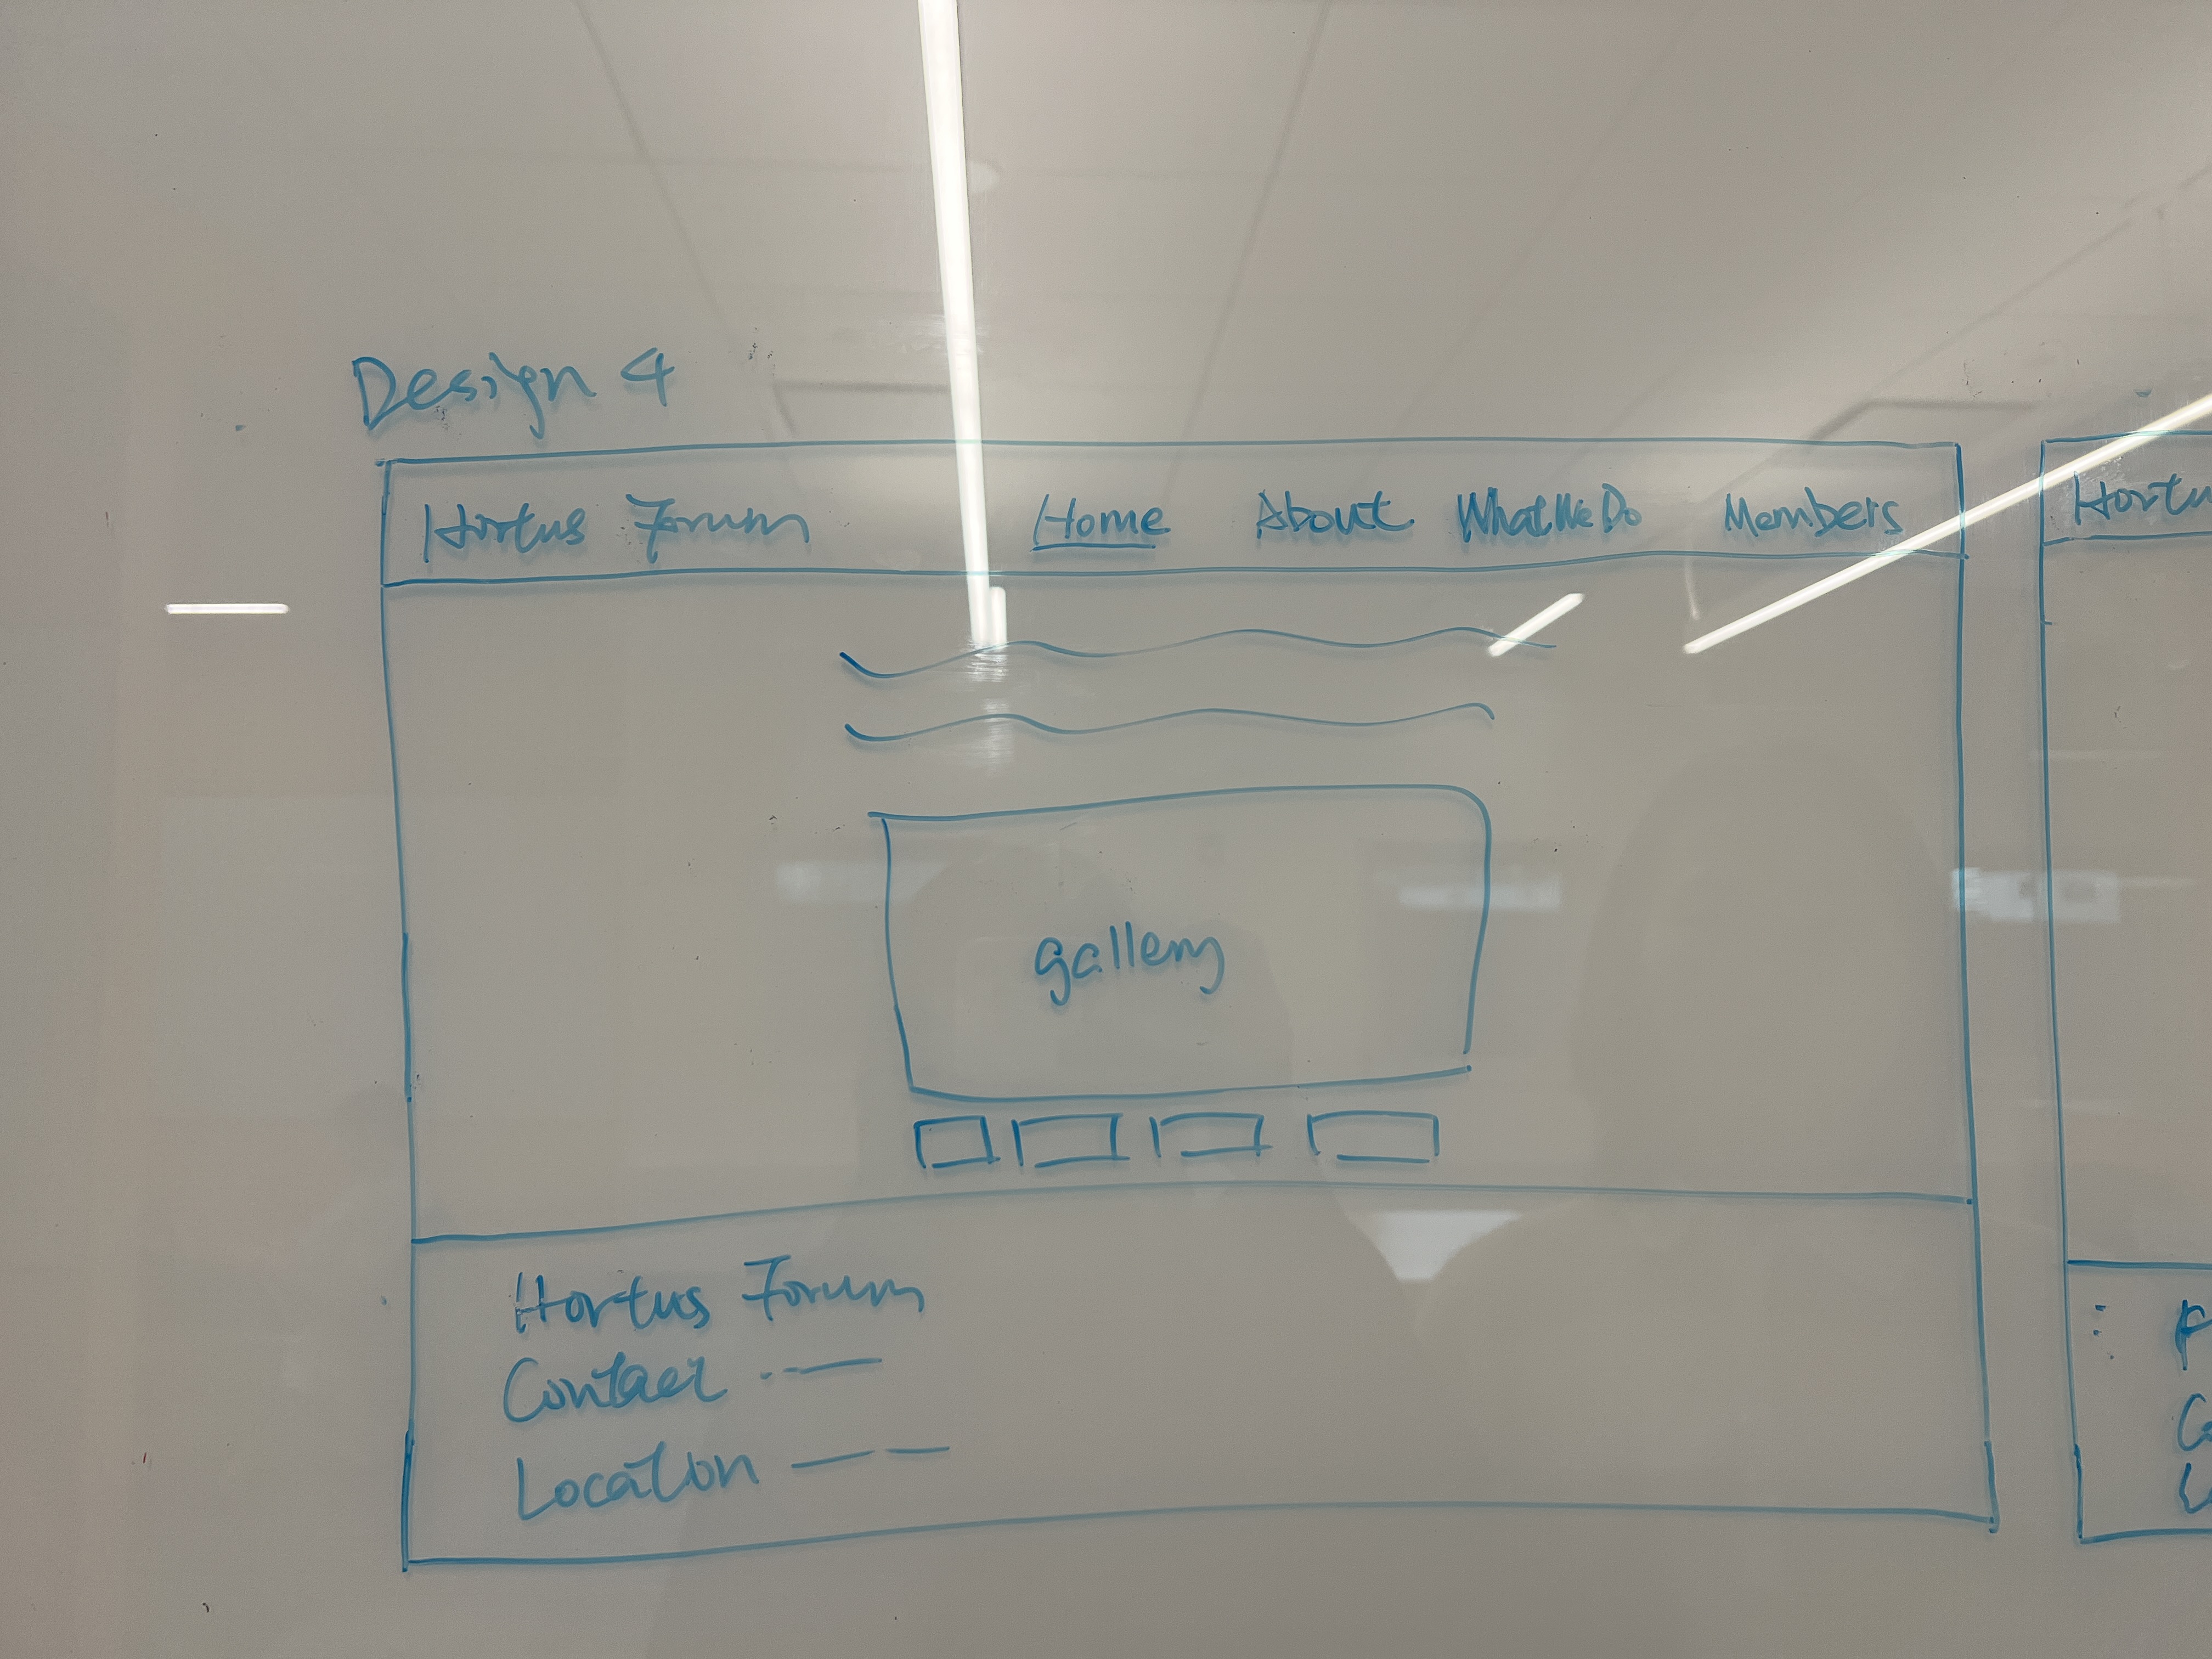 Design 4
Hortus Forum Home About What We Do Members
gallery
Hortus Forum
Contact
Location
Hortu